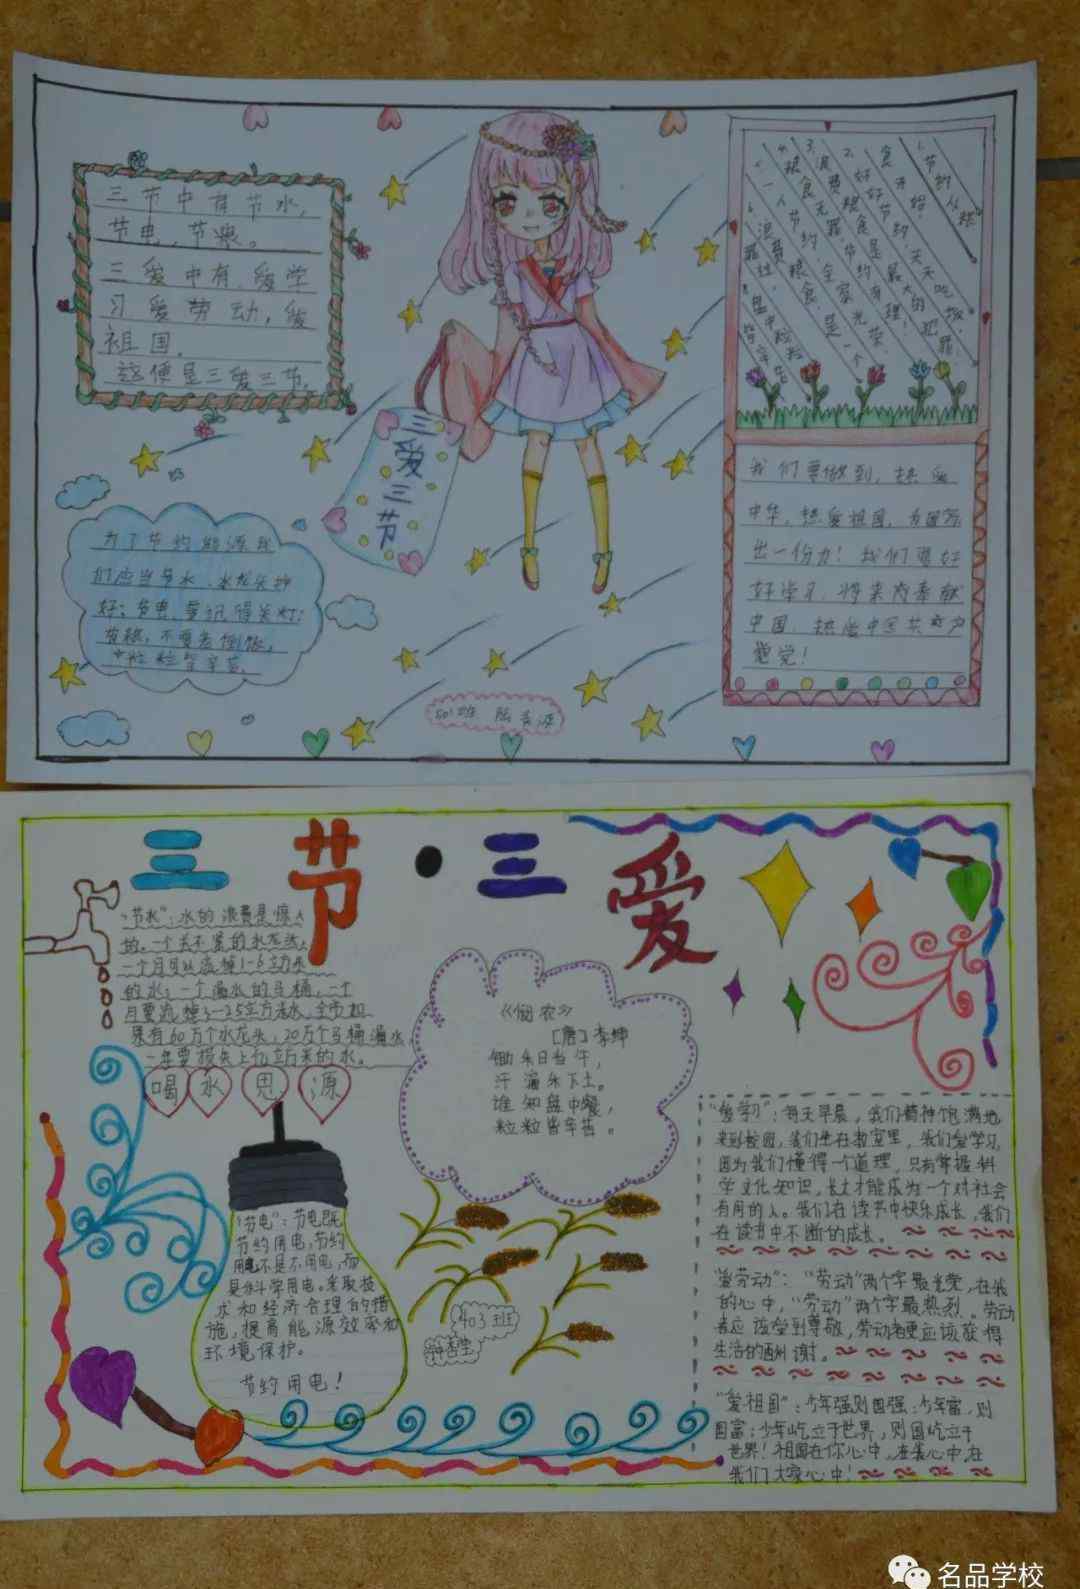 三节中有节水，
节电，节粮。
三爱中有，爱学
习爱劳动，爱
祖国。
这便是三爱三节。
三爱三节
为了节约能源我
们应当节水，水龙头拧
好；节电，要记得关灯；
节粮，不要老倒饭，
粒粒皆辛苦。
我们要做到，热爱
中华，热爱祖国，为国家
出一份力！我们要好
好学习，将来为奉献
中国，热爱中国共产
党！
501班
三节·三爱
"节水"：水的浪费是惊人
的。一个关不紧的水龙头，
一个月可以流掉1-6立方米
的水；一个漏水的马桶，一个
月要流掉3-25立方米水，全市如
果有60万个水龙头，20万个马桶漏水，
一年要损失上亿立方米的水。
喝水思源
《悯农》
[唐]李绅
锄禾日当午，
汗滴禾下土。
谁知盘中餐，
粒粒皆辛苦。
"节电"：节电既
节约用电，节约
用电不是不用电，而
是科学用电。采取技
术和经济合理的措
施，提高能源效率和
环境保护。
节约用电！
403班
"爱学习"：每天早晨，我们精神饱满地
来到校园，我们坐在教室里，我们爱学习，
因为我们懂得一个道理，只有掌握科
学文化知识，长大才能成为一个对社会
有用的人。我们在读书中快乐成长，我们
在读书中不断的成长。
"爱劳动"："劳动"两个字最光荣，在我
的心中，"劳动"两个字最热烈。劳动
者应该受到尊敬，劳动者更应该获得
生活的酬谢。
"爱祖国"：少年强则国强，少年富，则
国富；少年屹立于世界，则国屹立于
世界！祖国在你心中，在我心中，在
我们大家心中！
名品学校